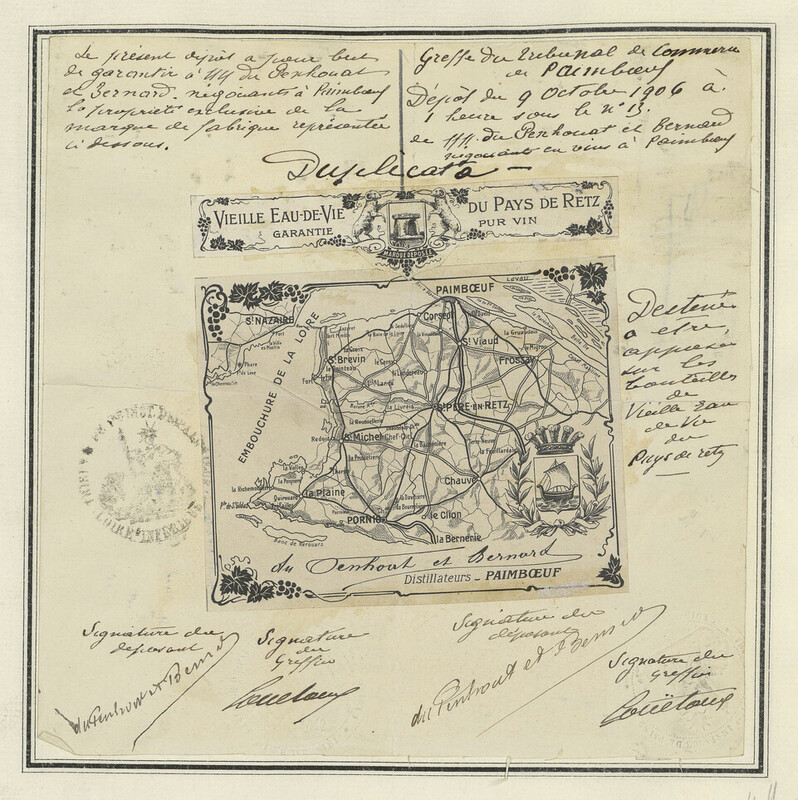 Le présent dépôt a pour but
de garantir à MM. du Penhouat
et Bernard. négociants à Paimbœuf
la propriété exclusive de la
marque de fabrique représentée
ci dessous.
Greffe du Tribunal de Commerce
de Paimbœuf
Dépôt du 9 Octobre 1906 à
1 heure sous le N° 13.
de MM. du Penhouat et Bernard
négociants en vins à Paimbœuf
Duplicata
VIEILLE EAU-DE-VIE
GARANTIE
DU PAYS DE RETZ
PUR VIN
MARQUE DÉPOSÉE
PAIMBŒUF
Lavau
St NAZAIRE
Corsept
St Viaud
Frossay
EMBOUCHURE DE LA LOIRE
St Brévin
St PÈRE-EN-RETZ
St Michel Chef-Chef
Chauvé
la Plaine
le Clion
PORNIC
la Bernerie
Banc de Kerouars
du Penhouat et Bernard
Distillateurs - PAIMBŒUF
Destiné
à être
apposé
sur les
bouteilles
de
Vieille Eau
de Vie
du
Pays de retz
LOIRE INFÉRIEURE
Signature du
déposant
du Penhouat et Bernard
Signature
du
Greffier
Couëtoux
Signature du
déposant
du Penhouat et Bernard
Signature du
Greffier
Couëtoux